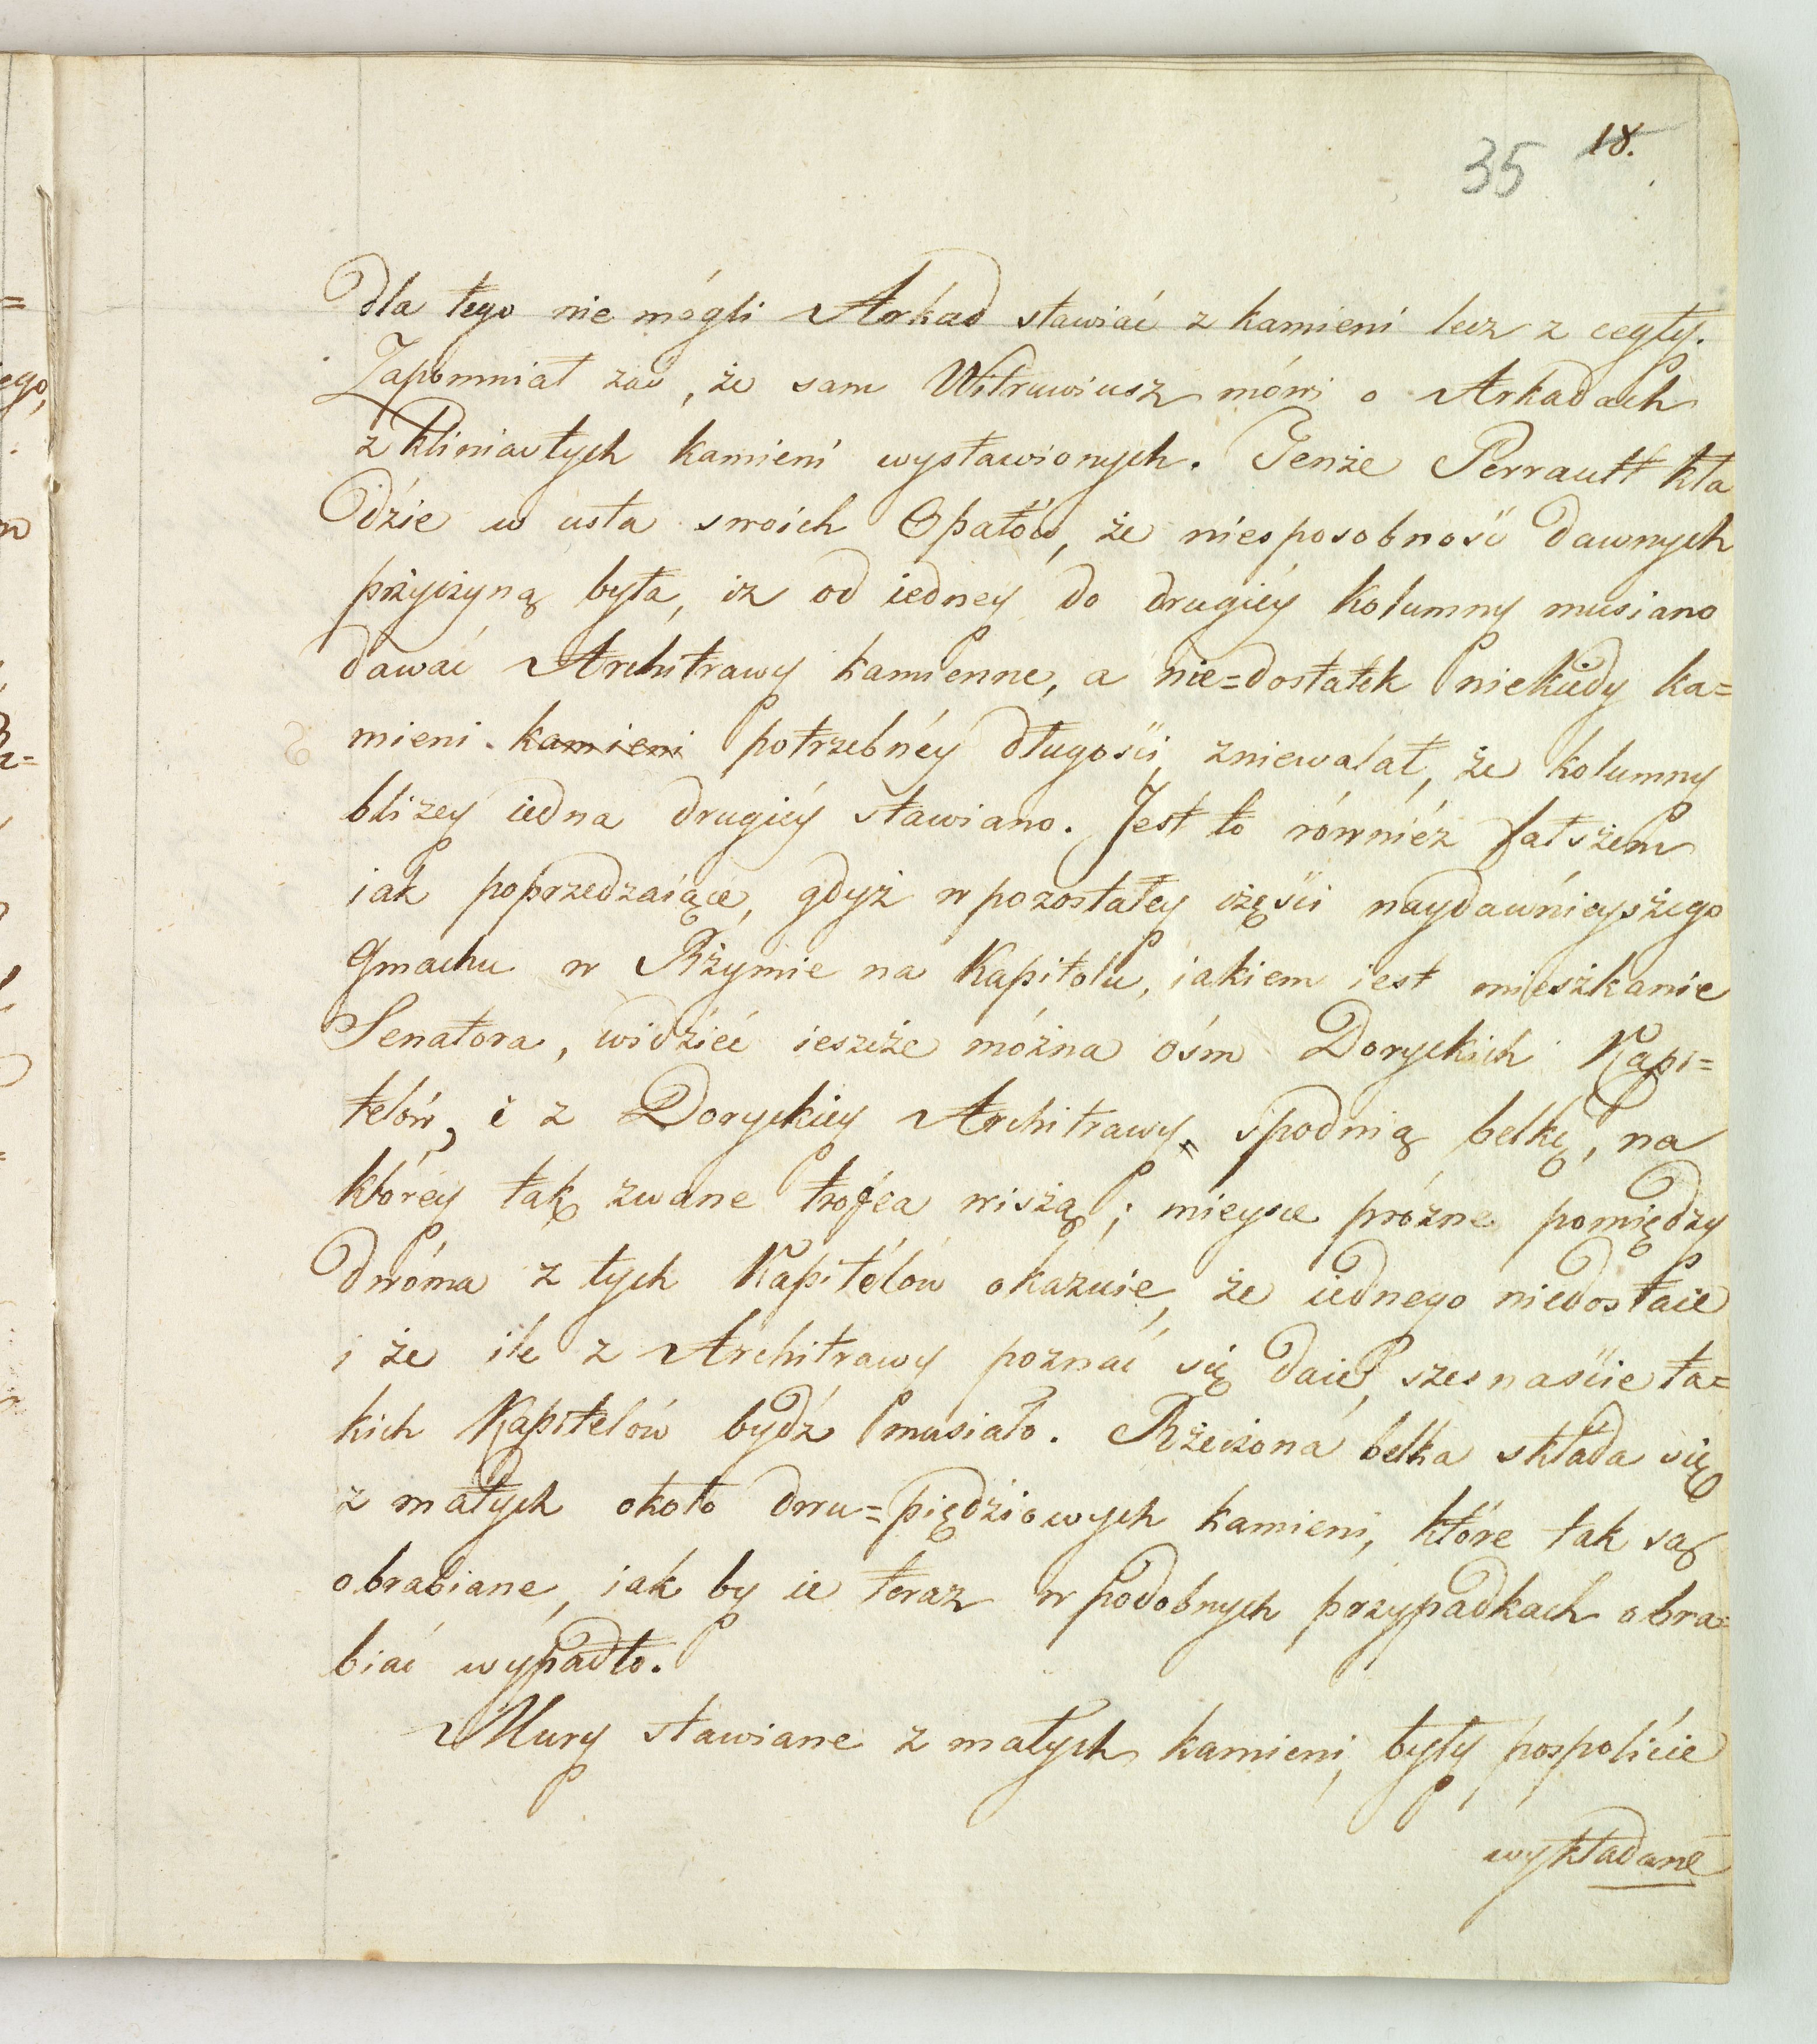 35 18.
dla tego nie mógli Arkad stawiać z kamieni lecz z cegły.
Zapomniał zaś, że sam Witruwiusz mówi o Arkadach
z kliniastych kamieni wystawionych. Tenże Perrault kła
dzie w usta swoich Opatów, że niesposobność dawnych
przyczyną była, iż od iedney do drugiéy kolumny musiano
dawać Architrawy kamienne, a nie=dostatek niekiedy ka=
mieni kamieni potrzebnéy długości, zniewalał, że kolumny
bliżey iedna drugiéy stawiano. Jest to również fałszem
iak poprzedzaiące, gdyż w pozostałey części naydawnieyszego
Gmachu w Rzymie na Kapitolu, iakiem iest mieszkanie
Senatora, widzieć ieszcze można ośm Doryckich Kapi=
telów, i z Doryckiey Architrawy= spodnią belkę, na
którey tak zwane trofea wiszą; mieysce prózne pomiędzy
dwóma z tych Kapitelów okazuie, że iednego niedostaie
i że ile z Architrawy poznać się daie, szesnaście ta=
kich Kapitelów bydź musiało. Rzeczona belka składa się
z małych około dwu=piędziowych kamieni, które tak są
obrabiane, iak by ie teraz w podobnych przypadkach obra=
biać wypadło.
Mury stawiane z małych kamieni, były pospolicie
wykładane